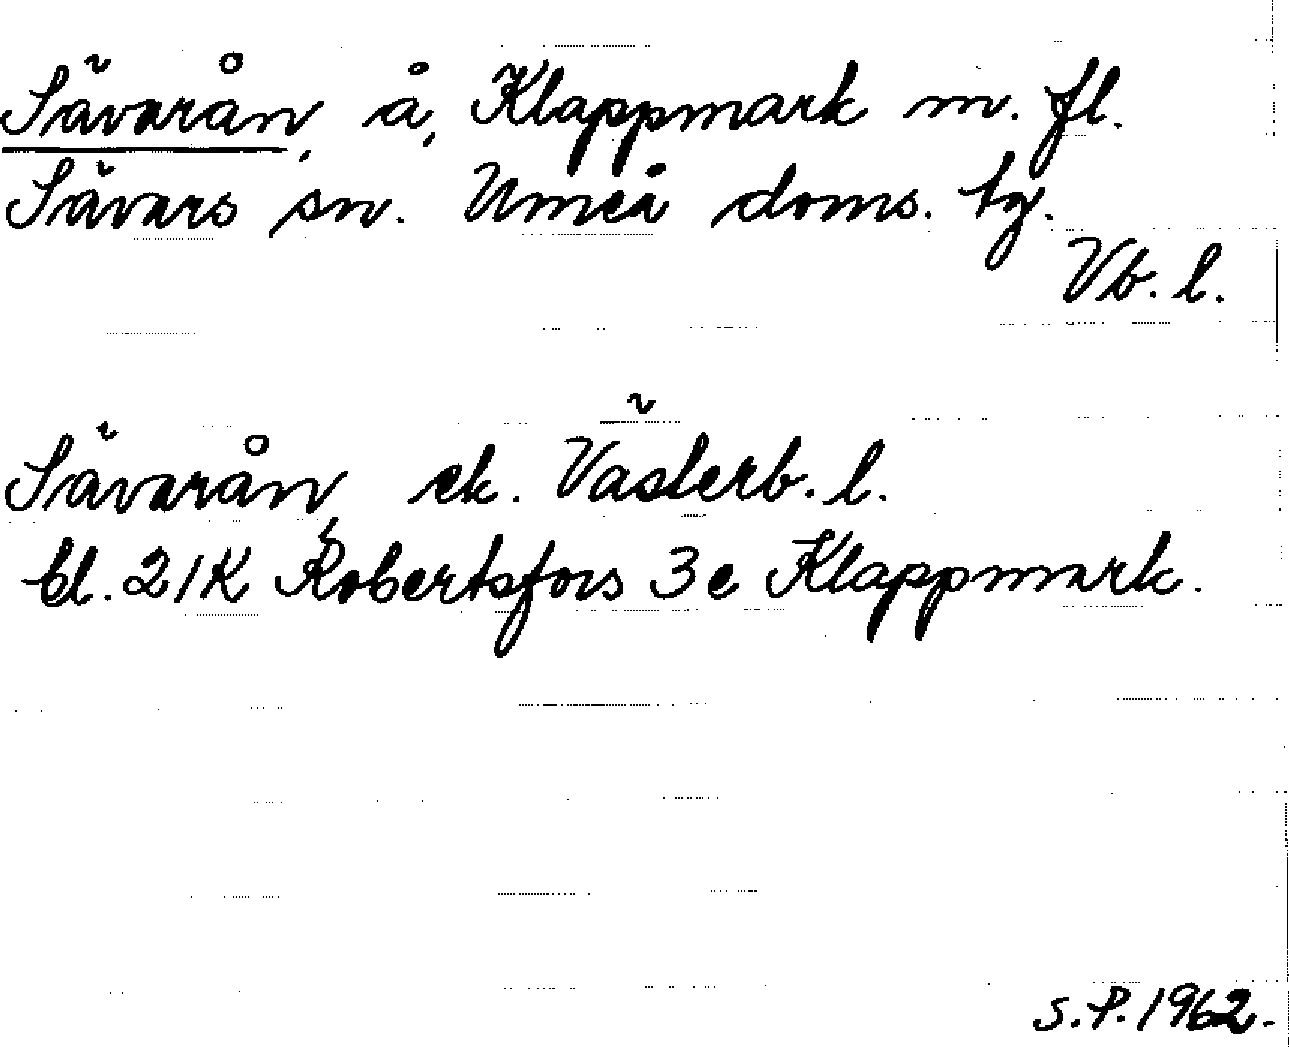 Sävarån, å, Klappmark m. fl.
Sävars sn. Umeå doms. tg.
Vb. l.
Sävarån, ek. Västerb. l.
bl. 21K Robertsfors 3e Klappmark.
S.P. 1962.